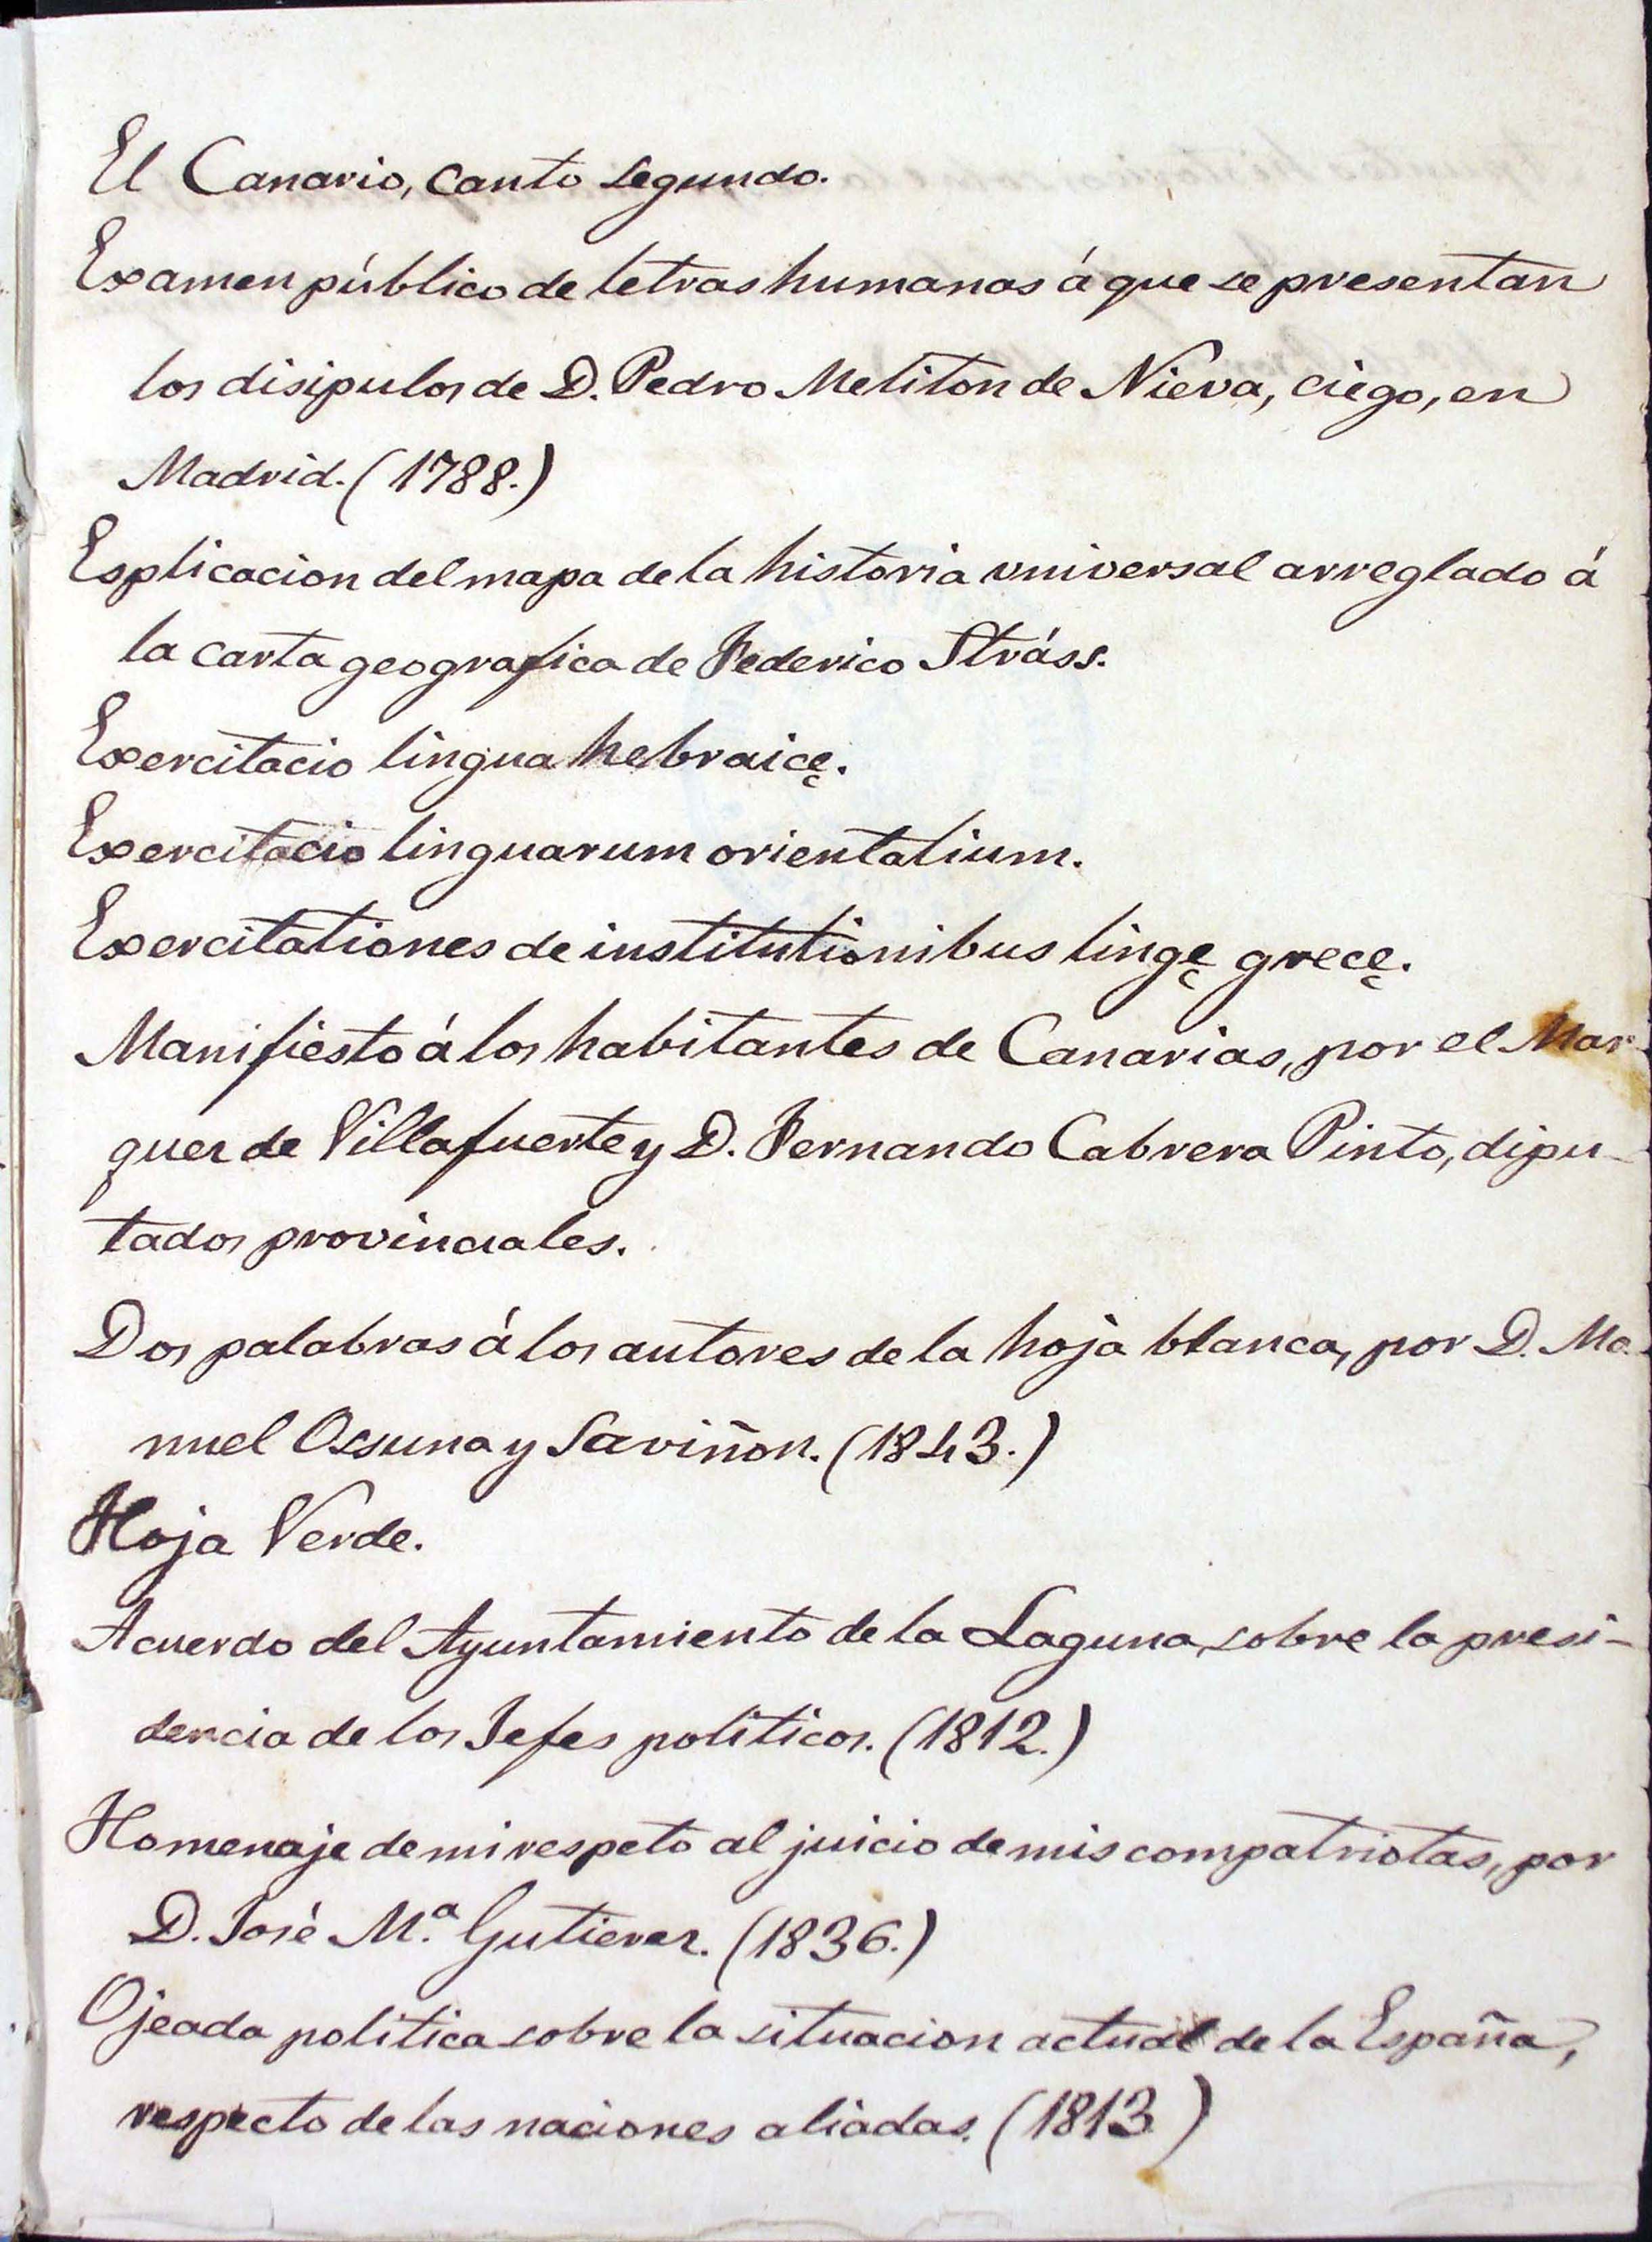 El Canario, canto segundo.
Examen público de letras humanas á que se presentan
los disipulos de D. Pedro Meliton de Nieva, ciego, en
Madrid. (1788.)
Esplicacion del mapa de la historia universal arreglado á
la carta geografica de Federico Stráss.
Exercitacio lingua hebraicę.
Exercitacio linguarum orientalium.
Exercitationes de institutionibus lingę grecę.
Manifiesto á los habitantes de Canarias, por el Mar-
ques de Villafuerte y D. Fernando Cabrera Pinto, dipu-
tados provinciales.
Dos palabras á los autores de la hoja blanca, por D. Ma-
nuel Ossuna y Saviñon. (1843.)
Hoja Verde.
Acuerdo del Ayuntamiento de la Laguna, sobre la presi-
dencia de los Jefes politicos. (1812.)
Homenaje de mi respeto al juicio de mis compatriotas, por
D. José Mª Gutierrez. (1836.)
Ojeada politica sobre la situacion actual de la España,
respecto de las naciones aliadas. (1813.)